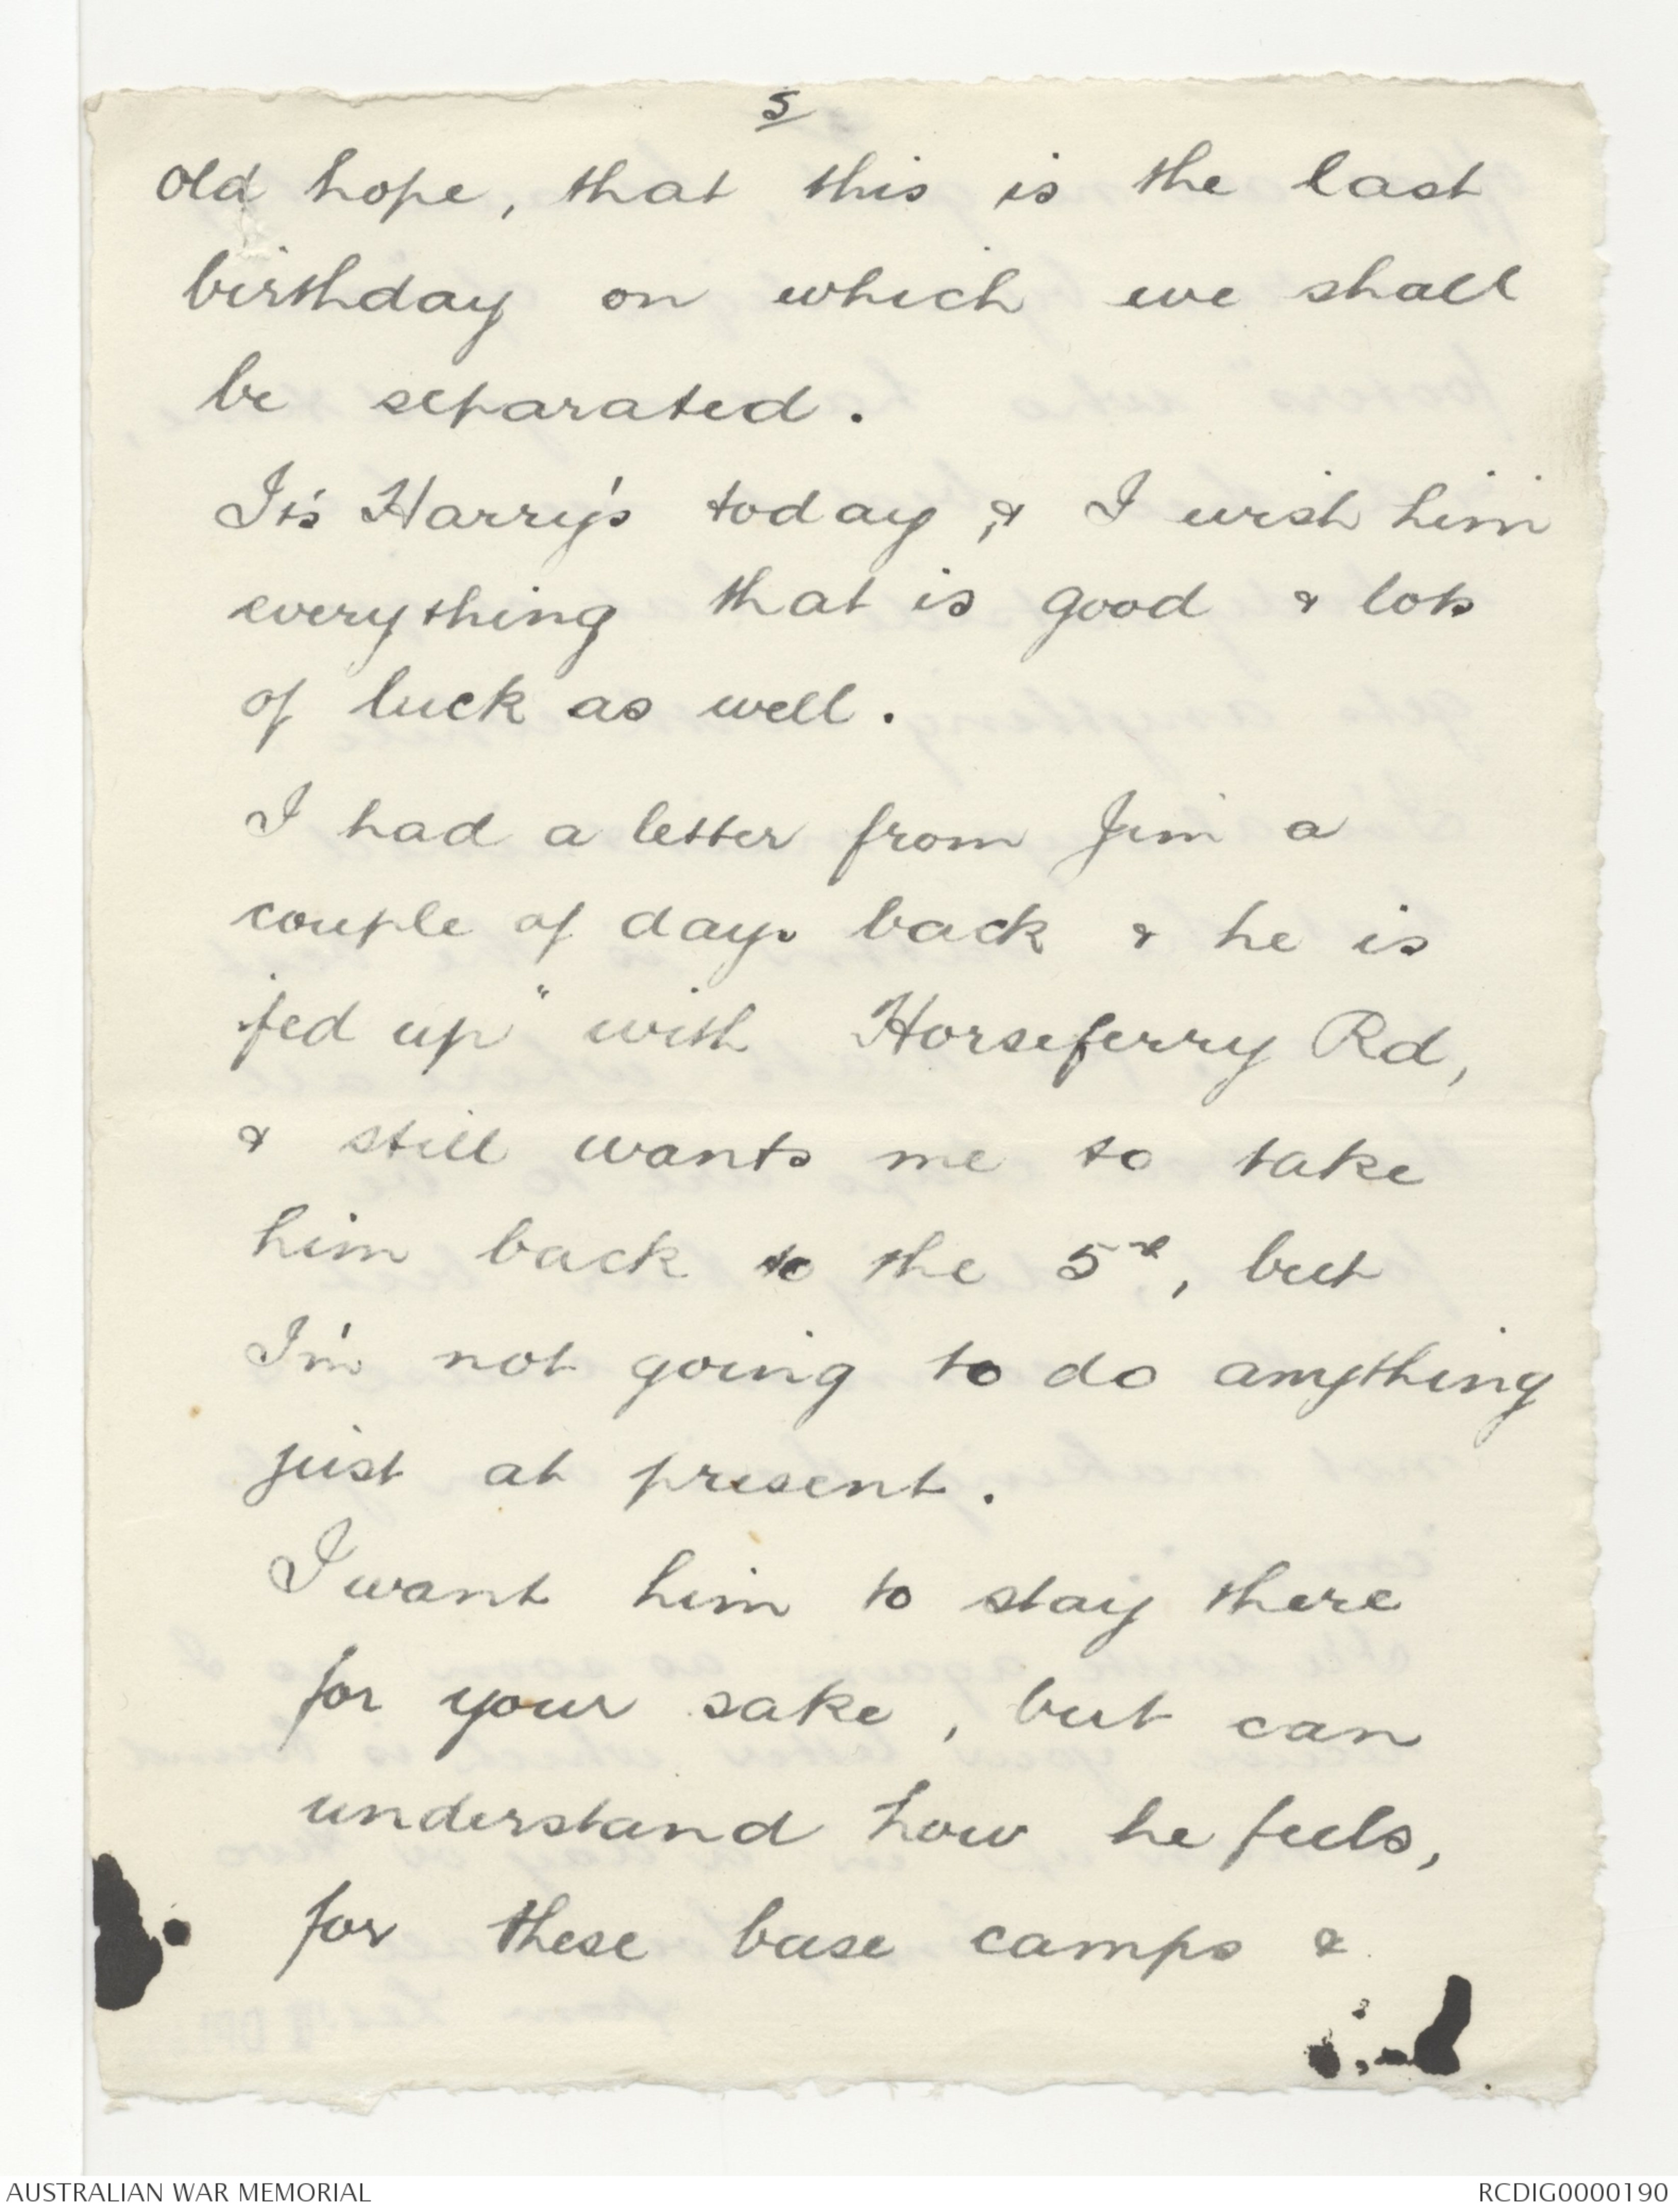 5
old hope, that this is the last
birthday on which we shall
be separated.
Its Harry's today, & I wish him
everything that is good & lots
of luck as well.
I had a letter from Jim a
couple of days back & he is
"fed up" with Horseferry Rd,
& still wants me to take
him back to the 5th, but
I'm not going to do anything
just at present.
I want him to stay there
for your sake, but can
understand how he feels,
for these base camps &
AUSTRALIAN WAR MEMORIAL
RCDIG0000190